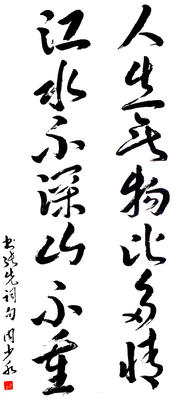 人生无物比多情
江水不深山不重
书张先词句 周少